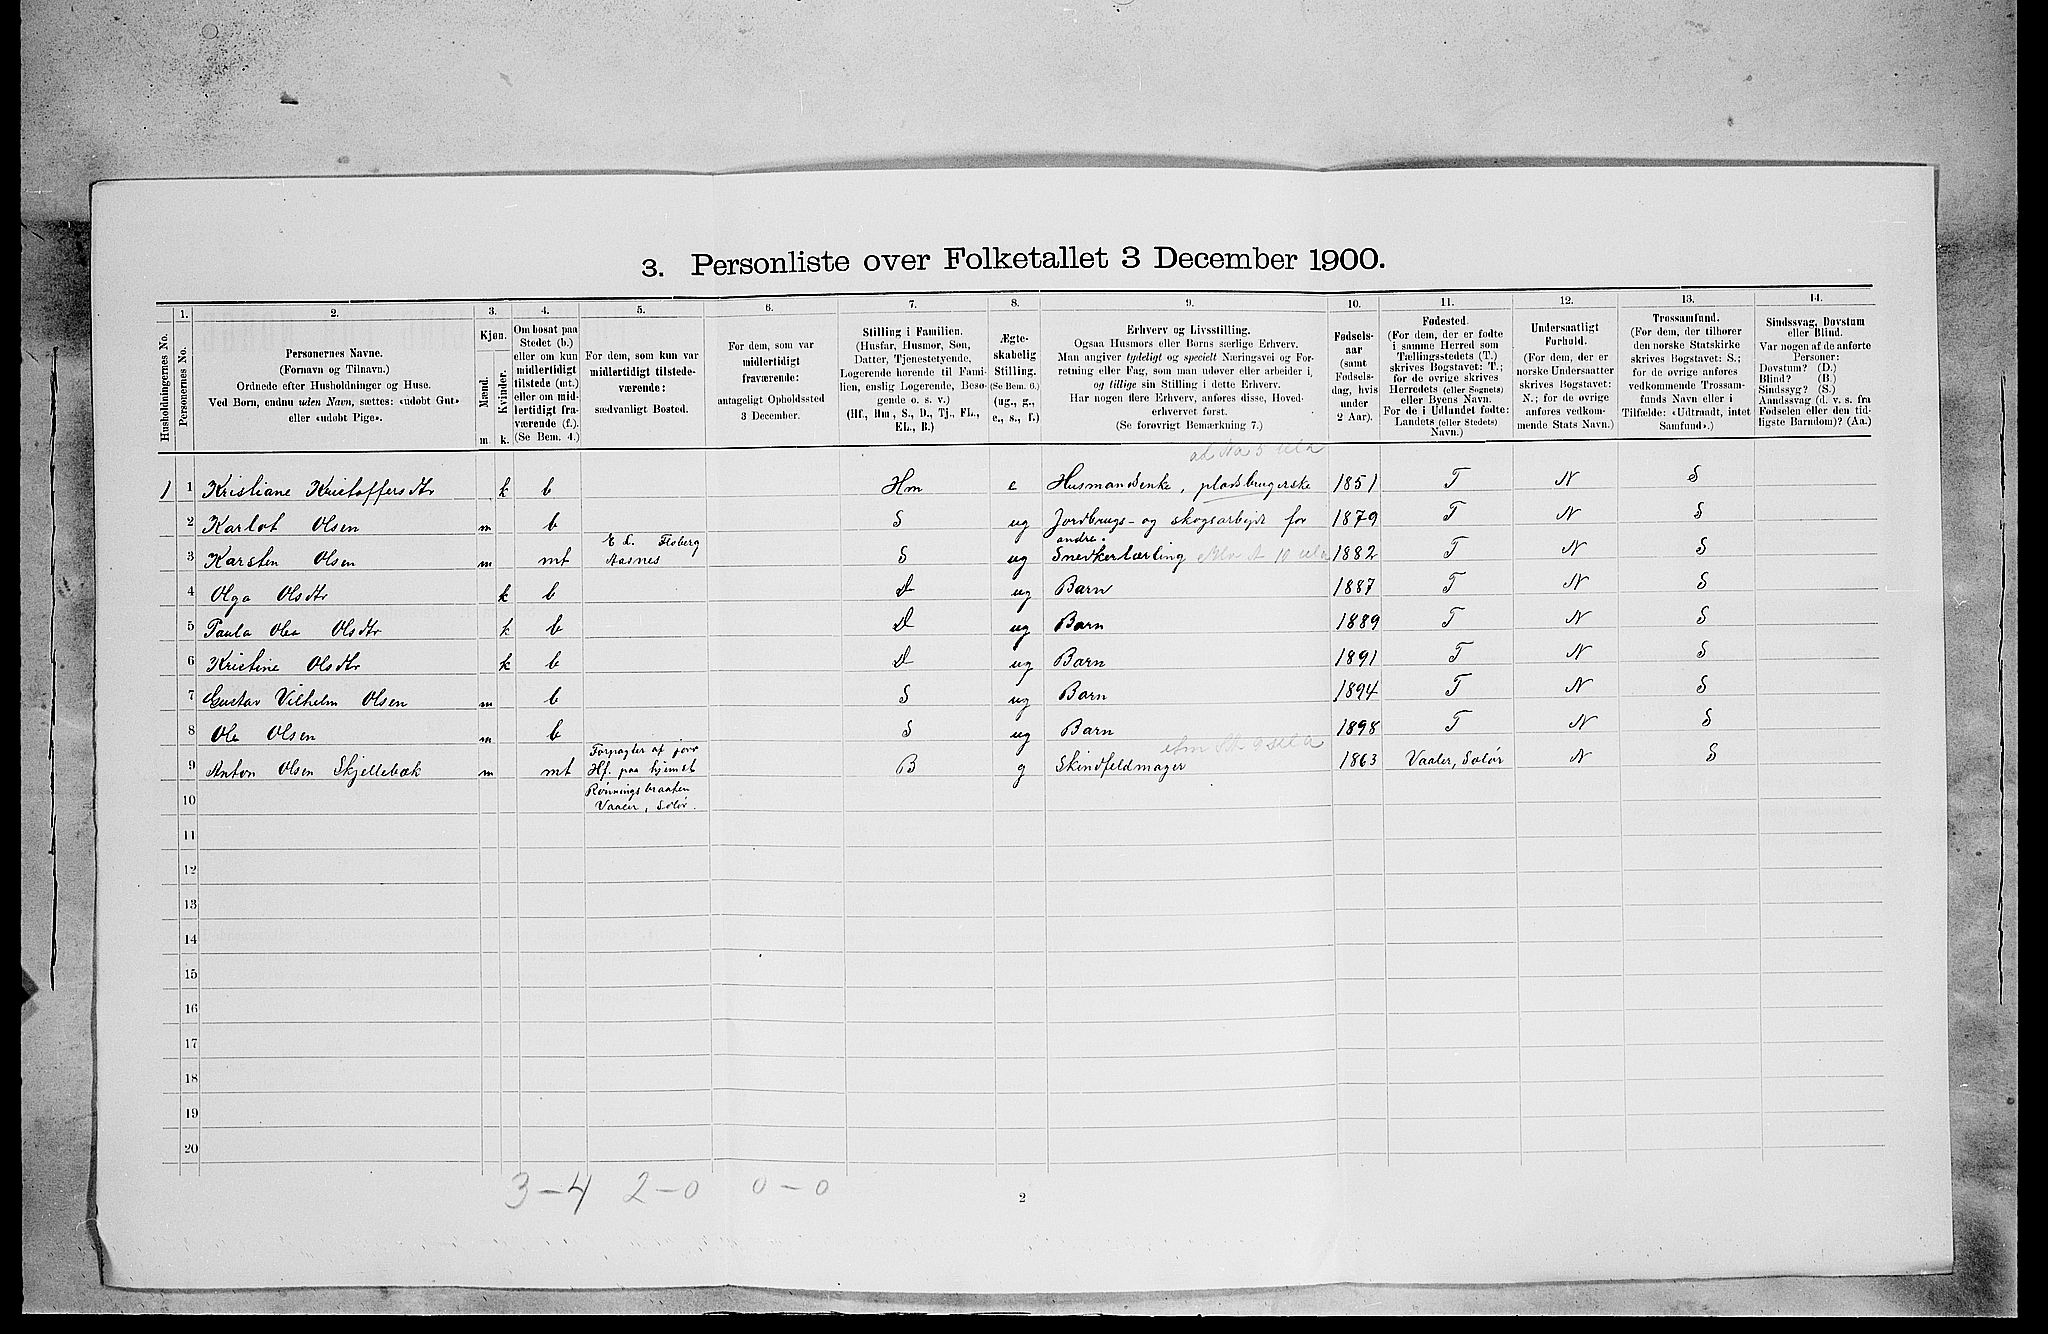 3. Personliste over Folketallet 3 December 1900.
Husholdningernes No.
1.
Personernes No.
2.
Personernes Navne.
(Fornavn og Tilnavn.)
Ordnede efter Husholdninger og Huse.
Ved Børn, endnu uden Navn, sættes: «udøbt Gut»
eller «udøbt Pige».
3.
Kjøn.
Mænd.
Kvinder.
m
k.
4.
Om bosat paa
Stedet (b.)
eller om kun
midlertidigt
tilstede (mt.)
eller om mid-
lertidigt fra-
værende (f.).
(Se Bem. 4.)
5.
For dem, som kun var
midlertidigt tilstede-
værende:
sædvanligt Bosted.
6.
For dem, som var
midlertidigt
fraværende:
antageligt Opholdssted
3 December.
7.
Stilling i Familien.
(Husfar, Husmor, Søn,
Datter, Tjenestetyende,
Logerende hørende til Fami-
lien, enslig Logerende, Besø-
gende o. s. v.)
(Hf., Hm., S., D., Tj., FL.,
EL., B.)
8.
Ægte-
skabelig
Stilling.
(Se Bem. 6.)
(ug., g.,
e., s., f.)
9.
Erhverv og Livsstilling.
Ogsaa Husmors eller Børns særlige Erhverv.
Man angiver tydeligt og specielt Næringsvei og For-
retning eller Fag, som man udøver eller arbeider i,
og tillige sin Stilling i dette Erhverv.
Har nogen flere Erhverv, anføres disse, Hoved-
erhvervet først.
(Se forøvrigt Bemærkning 7.)
10.
Fødsels-
aar
(samt
Fødsels-
dag, hvis
under
2 Aar).
11.
Fødested.
(For dem, der er fødte
i samme Herred som
Tællingsstedets (T.)
skrives Bogstavet: T.;
for de øvrige skrives
Herredets (eller Sognets)
eller Byens Navn.
For de i Udlandet fødte:
Landets (eller Stedets)
Navn.)
12.
Undersaatligt
Forhold.
(For dem, der er
norske Undersaatter
skrives Bogstavet:
N.; for de øvrige
anføres vedkom-
mende Stats Navn.)
13.
Trossamfund.
(For dem, der tilhører
den norske Statskirke
skrives Bogstavet: S.;
for de øvrige anføres
vedkommende Trossam-
funds Navn eller i
Tilfælde: «Udtraadt, intet
Samfund».)
14.
Sindssvag, Døvstum
eller Blind.
Var nogen af de anførte
Personer:
Døvstum? (D.)
Blind? (B.)
Sindssyg? (S.)
Aandssvag (d. v. s. fra
Fødselen eller den tid-
ligste Barndom)? (Aa.)
1 1 Kristiane Kristoffersdtr k b Hm e Husmandsenke, pladsbrugerske 1851 T N S
2 Karlot Olsen m b S ug Jordbrugs- og skogsarbejdr for andre. 1879 T N S
3 Karsten Olsen m mt E L. Floberg Aasnes S ug Snedkerlærling 1882 T N S
4 Olga Olsdtr k b D ug Barn 1887 T N S
5 Paula Olea Olsdtr k b D ug Barn 1889 T N S
6 Kristine Olsdtr k b D ug Barn 1891 T N S
7 Gustav Vilhelm Olsen m b S ug Barn 1894 T N S
8 Ole Olsen m b S ug Barn 1898 T N S
9 Anton Olsen Skjellebæk m mt Forpagter af jord Hf. paa hjemst Rønningsbraaten Vaaler, Solør. B g Skindfeldmager 1863 Vaaler, Solør N S
10
11
12
13
14
15
16
17
18
19
20
3-4 2-0 0-0
2